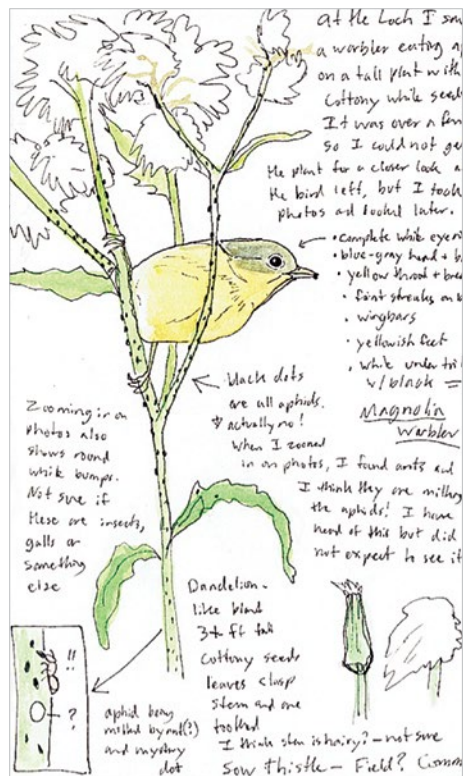 At the Loch I saw
a warbler eating
on a tall plant with
cottony white seeds
It was over a fen
so I could not ge
the plant for a closer look a
the bird left, but I took
photos ad looked later.
• complete white eyeri
• blue-gray head + b
• yellow throat + brea
• faint streaks on b
• wingbars
• yellowish feet
• white under tri
w/ black =
Magnolia
Warbler
black dots
are all aphids.
* actually no!
When I zoomed
in on photos, I found ants and
I think they are milking
the aphids! I have
heard of this but did
not expect to see it
Zooming in on
photos also
shows round
white bumps.
Not sure if
these are insects,
galls or
something
else
!!
?
aphid being
milked by ant(?)
and mystery
dot
Dandelion-
like plant
3+ ft tall
cottony seeds
leaves clasp
stem and are
toothed
I think stem is hairy? - not sure
Sow thistle - Field? Common